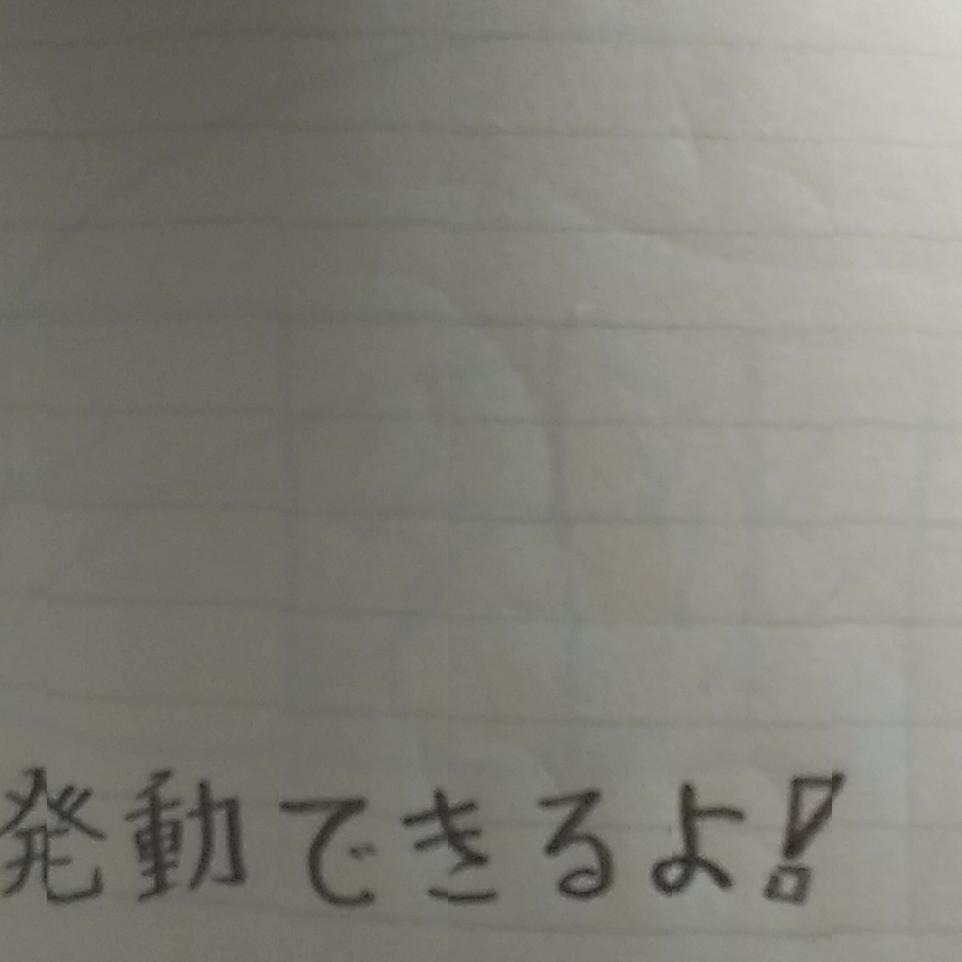 発動できるよ!